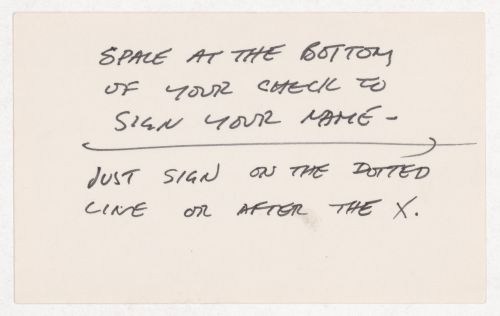 SPACE AT THE BOTTOM
OF YOUR CHECK TO
SIGN YOUR NAME -
JUST SIGN ON THE DOTTED
LINE OR AFTER THE X.